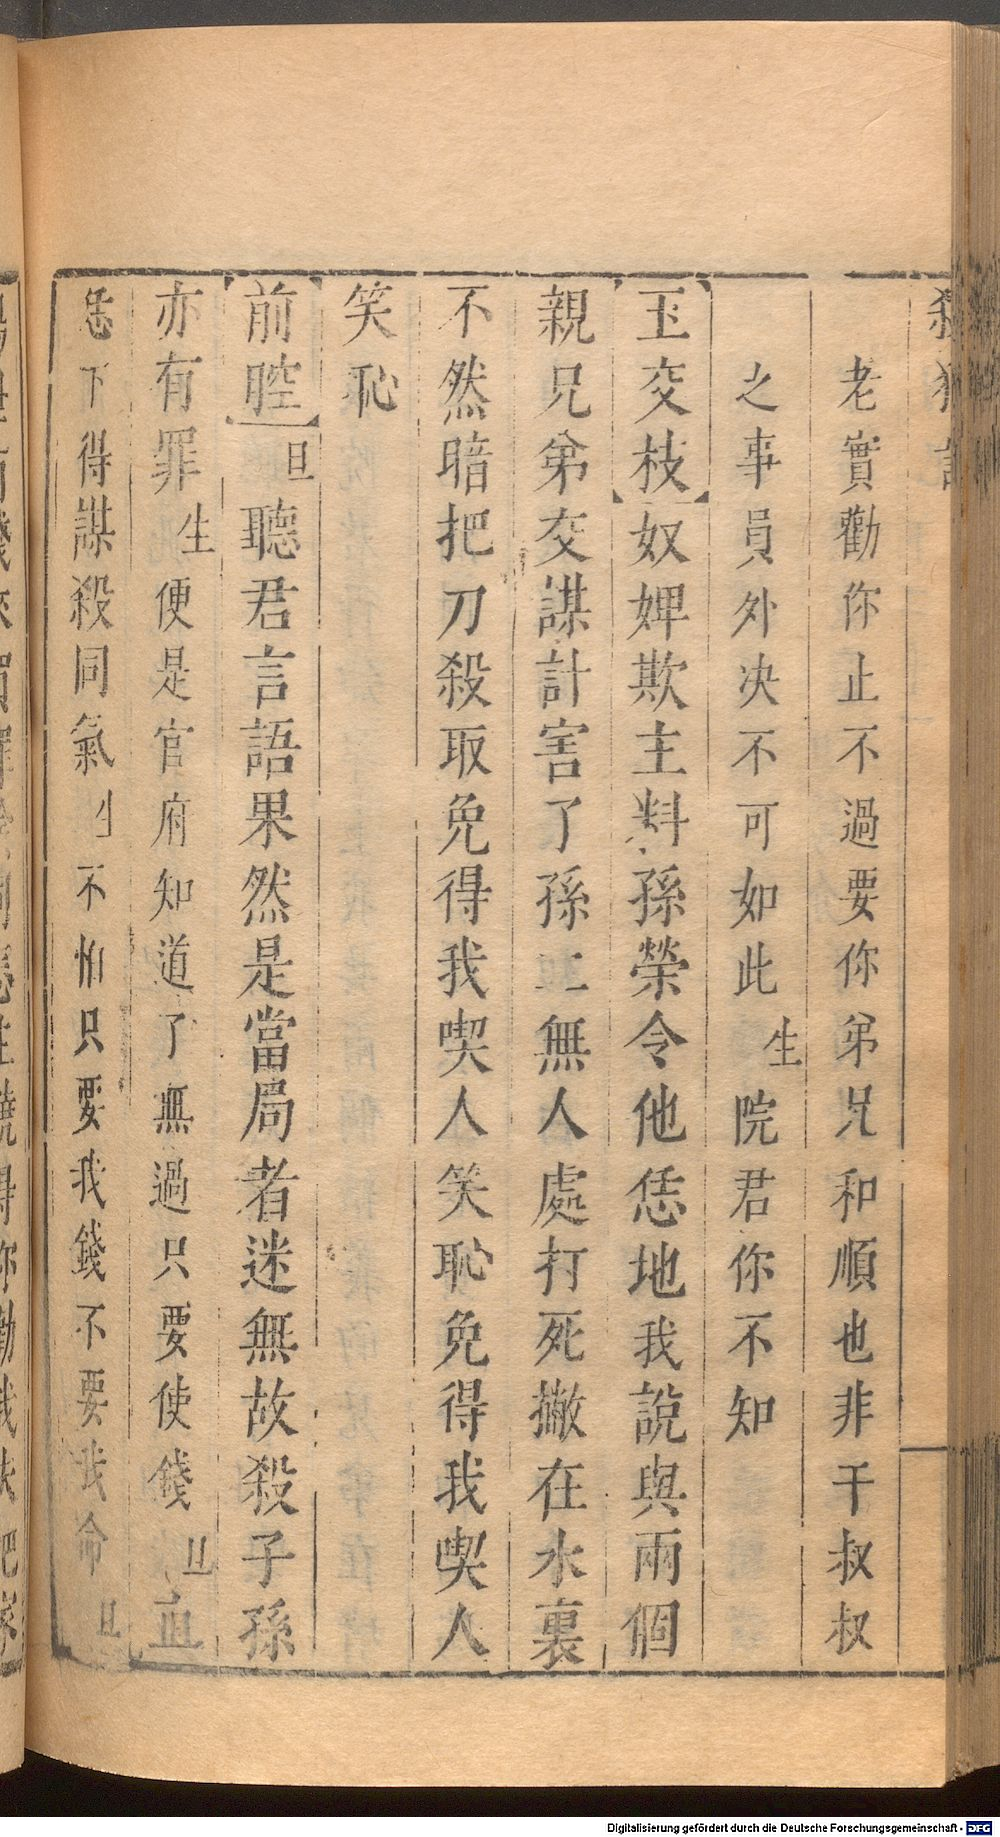 殺狗記
老實勸你止不過要你弟兄和順也非干叔叔
之事員外决不可如此生院君你不知
玉交枝奴婢欺主料孫榮令他恁地我說與兩個
親兄弟交謀計害了孫二無人處打死撇在水裏
不然暗把刀殺取免得我喫人笑恥免得我喫人
笑恥
前腔旦聽君言語果然是當局者迷無故殺子孫
亦有罪生便是官府知道了無過只要使錢旦
恁下得謀殺同氣生不怕只要我錢不要我命旦
Digitalisierung gefördert durch die Deutsche Forschungsgemeinschaft - DFG